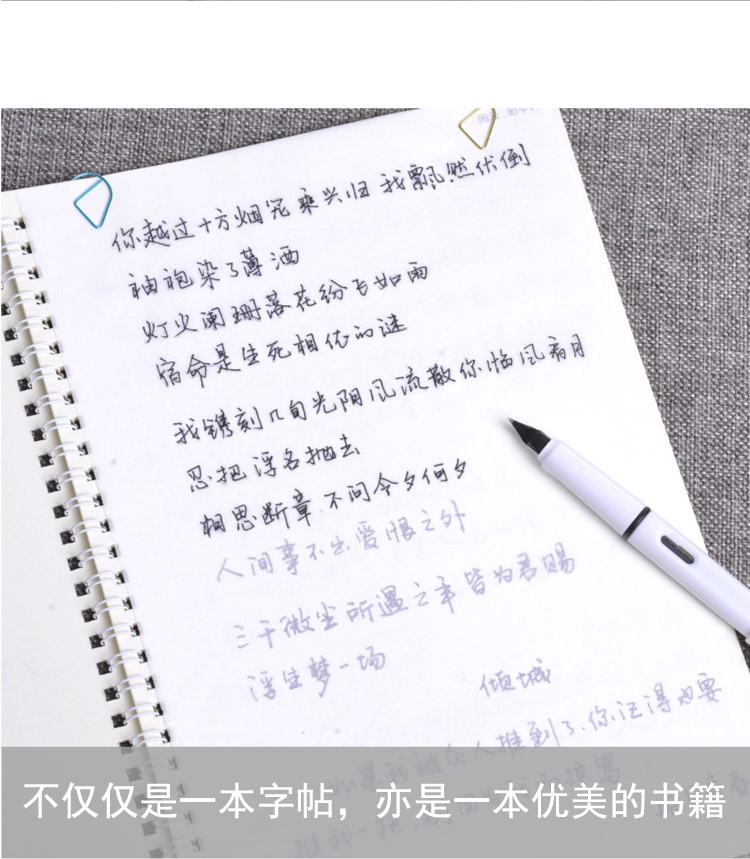 你越过十方烟乘兴归 我飘然伏倒
袖袍染了薄酒
灯火阑珊落花纷飞如雨
宿命是生死相依的谜
我镌刻几旬光阴风流散你临风看月
忍把浮名抛去
相思断章 不问今夕何夕
人间事不出爱恨之外
三千微尘所遇之幸皆为君赐
浮生梦一场
倾城
如果我被众人推到了,你记得也要
不仅仅是一本字帖，亦是一本优美的书籍